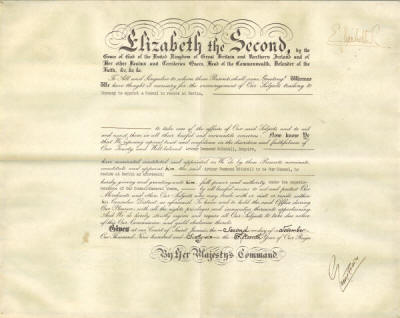 Elizabeth the Second, by the
Grace of God of the United Kingdom of Great Britain and Northern Ireland and of
Her other Realms and Territories Queen, Head of the Commonwealth, Defender of the
Faith, &c. &c. &c.
To All and Singular to whom these Presents shall come, Greeting! Whereas
We have thought it necessary for the encouragement of Our Subjects trading to
Germany to appoint a Consul to reside at Berlin,
to take care of the affairs of Our said Subjects and to aid
and assist them in all their lawful and mercantile concerns: Now know Ye
that We reposing especial trust and confidence in the discretion and faithfulness of
Our Trusty and Well-beloved Desmond Esquire,
have nominated constituted and appointed as We do by these Presents nominate,
constitute and appoint him the said Desmond to be Our Consul, to
reside at Berlin as aforesaid;
hereby giving and granting unto him full power and authority, under the superintendence
of Our Consul-General there, by all lawful means to aid and protect Our
Merchants and others Our Subjects who may trade with or visit or reside within
his Consular District as aforesaid. To have and to hold the said Office during
Our Pleasure with all the rights privileges and immunities thereunto appertaining.
And We do hereby strictly enjoin and require all Our Subjects to take due notice
of this Our Commission and yield obedience thereto.
Given at Our Court of Saint James's, the Second day of
One Thousand Nine Hundred and in the Fifteenth Year of Our Reign.
By Her Majesty's Command